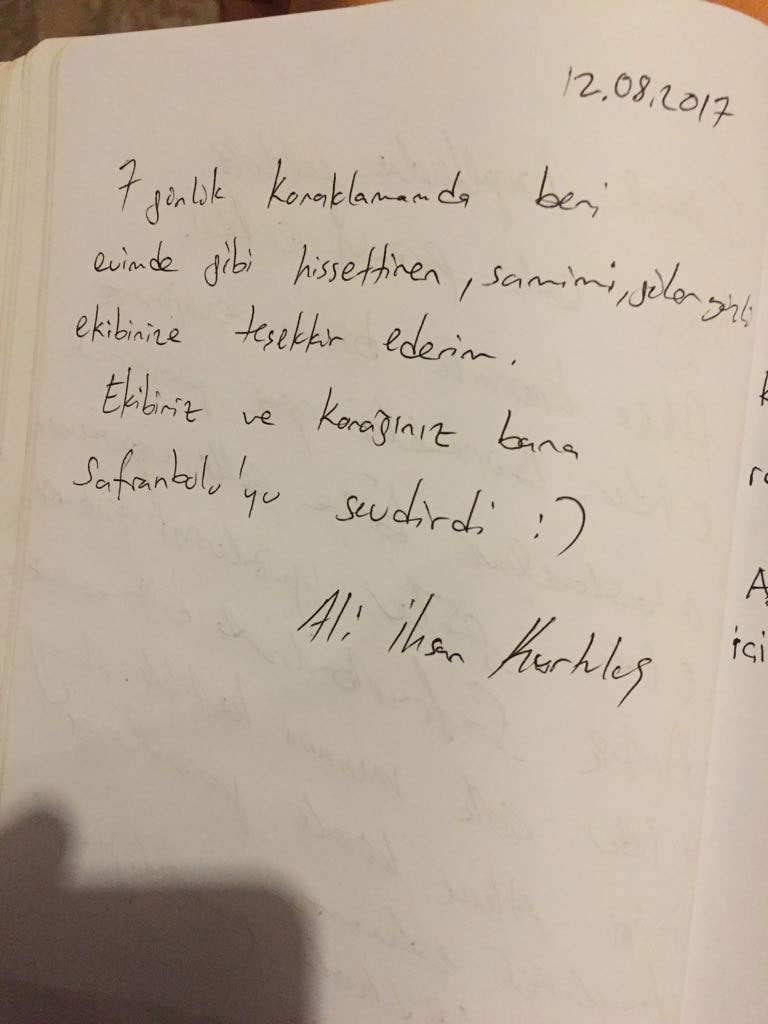 12.08.2017
7 günlük konaklamamda beni
evimde gibi hissettiren, samimi, güler yüzlü
ekibinize teşekkür ederim.
Ekibiniz ve Konağınız bana
Safranbolu'yu sevdirdi :)
Ali İhsan Kurtuluş